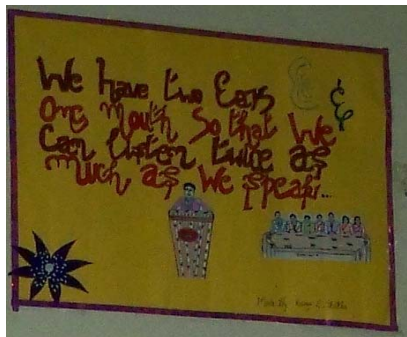 We have two Ears &
One Mouth So that We
Can listen twice as
Much as we speak...
Made By